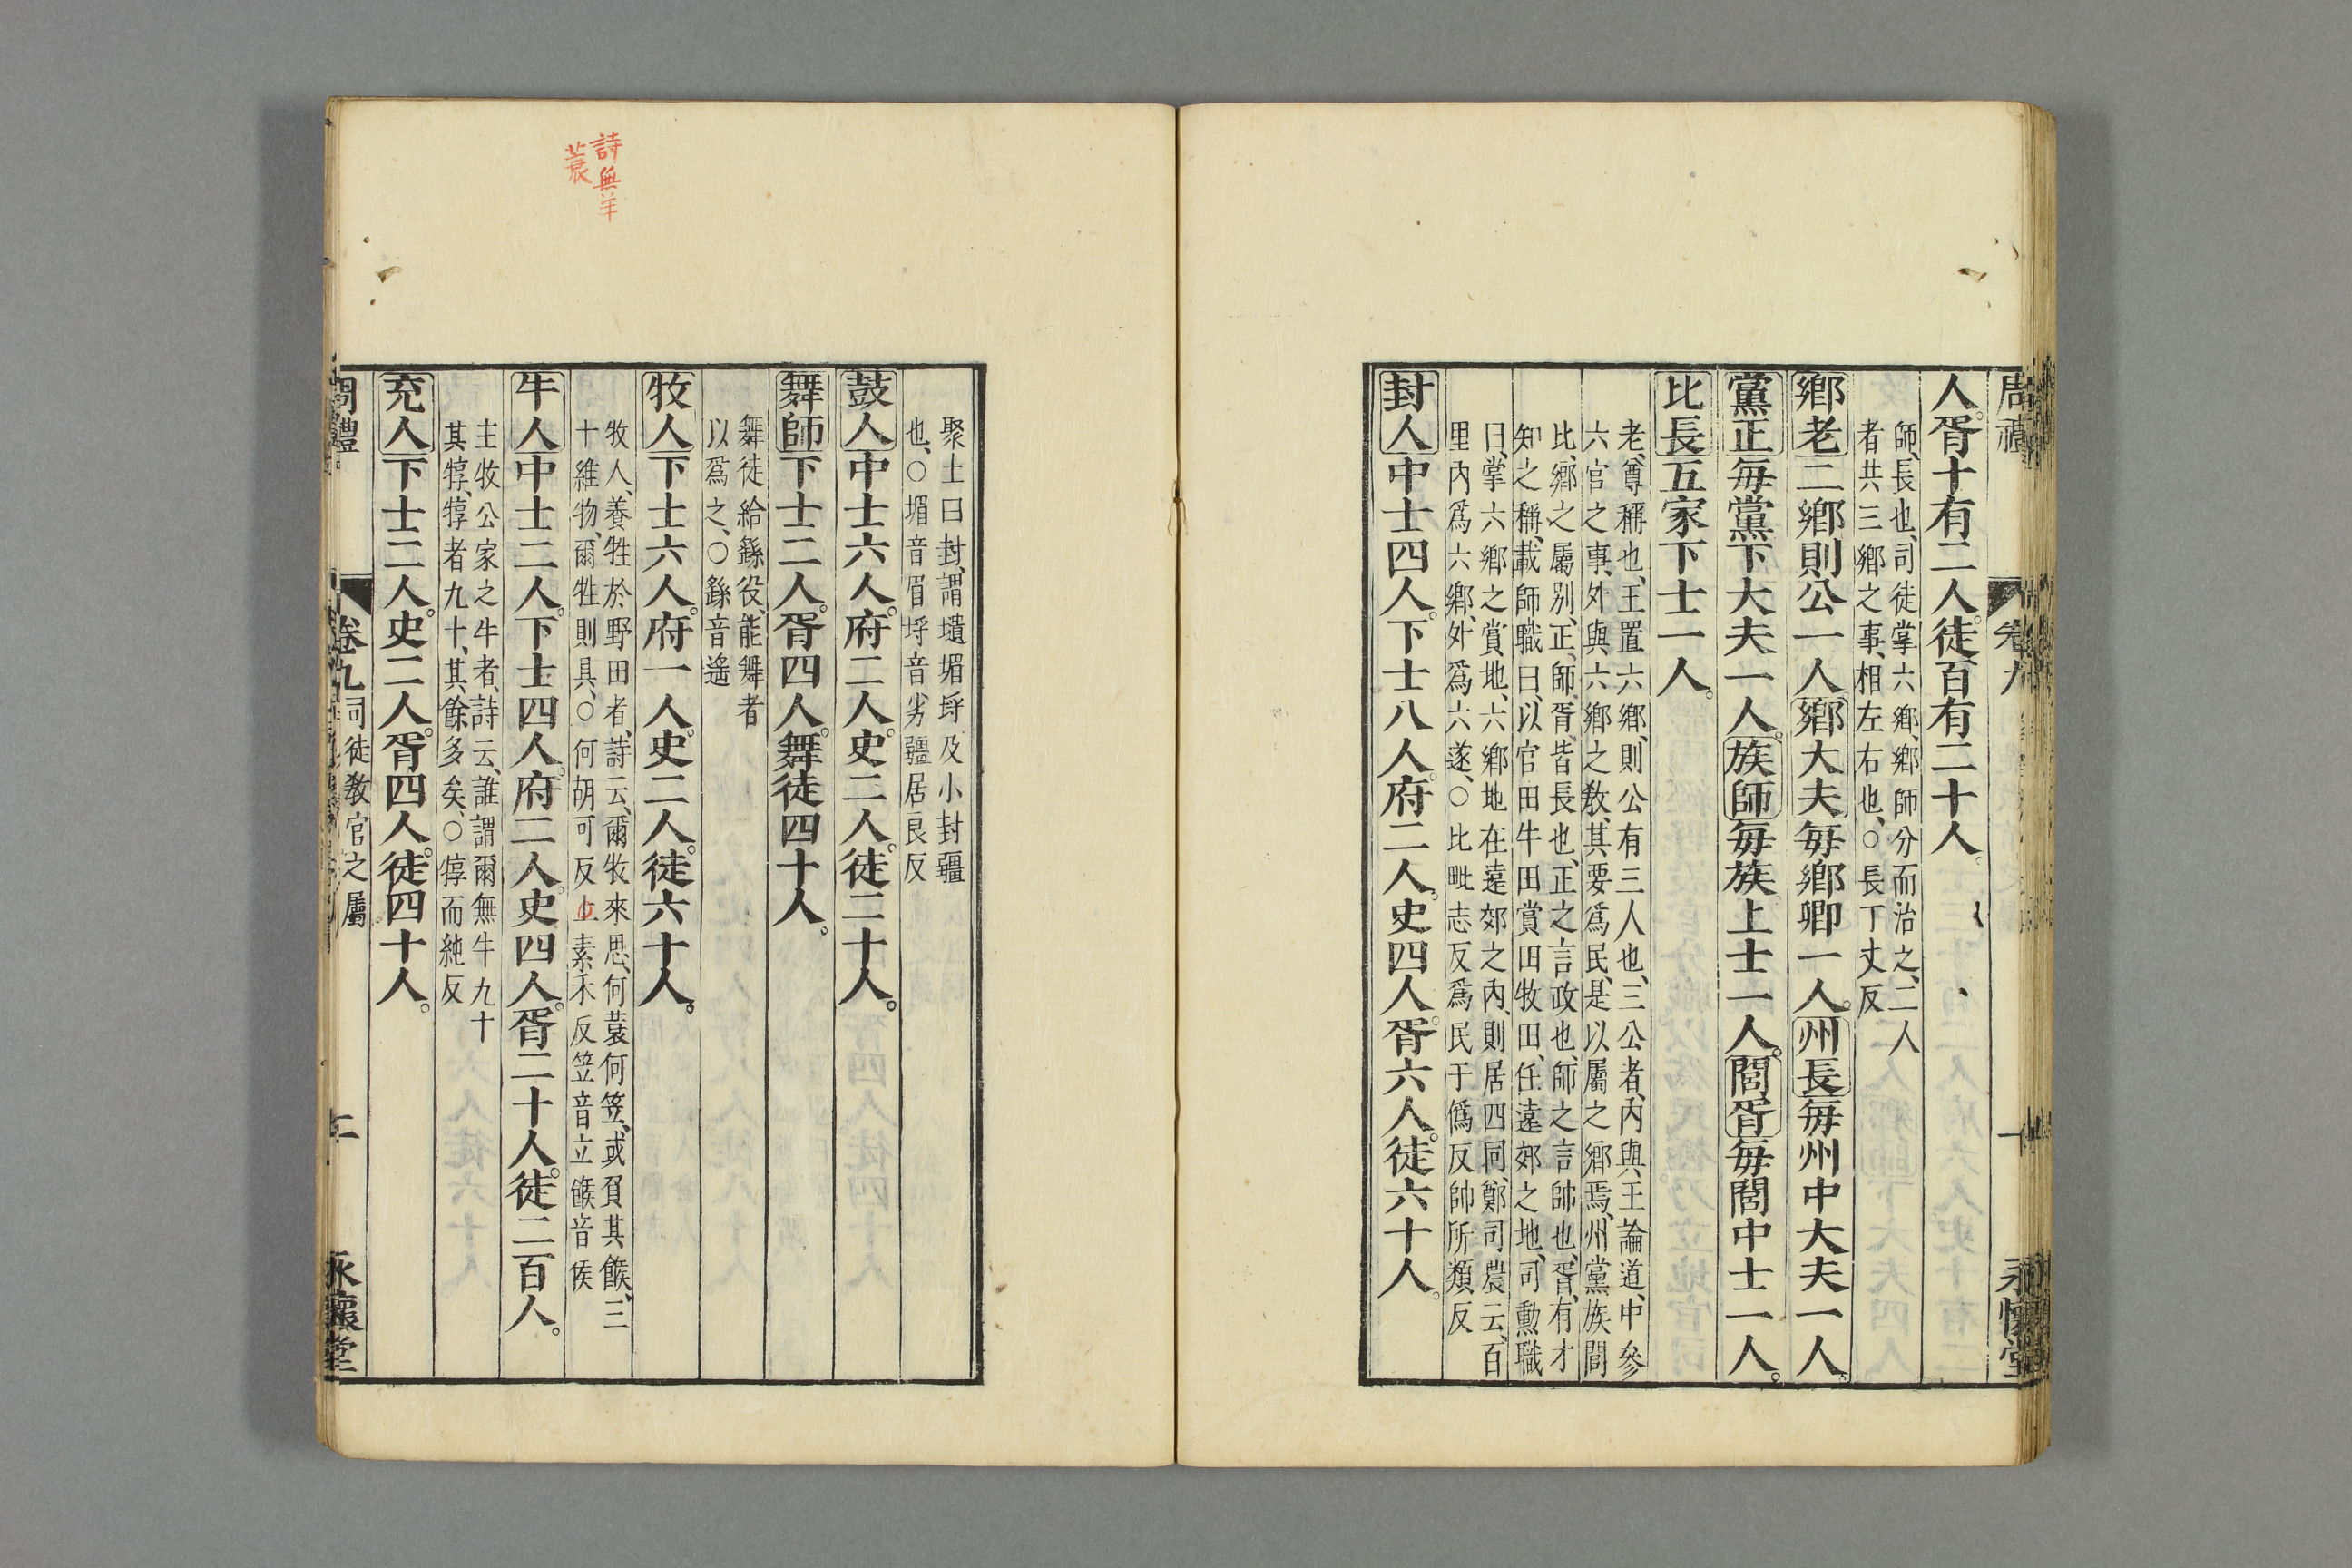 周禮 卷九 一 永懷堂
人。胥十有二人。徒百有二十人。
師、長也、司徒掌六鄉、鄉師分而治之、二人
者共三鄉之事、相左右也、○長丁丈反
鄉老二鄉則公一人鄉大夫每鄉卿一人。州長每州中大夫一人。
黨正每黨下大夫一人。族師每族上士一人。閭胥每閭中士一人。
比長五家下士一人。
老、尊稱也、王置六鄉、則公有三人也、三公者、內與王論道、中參
六官之事、外與六鄉之教、其要爲民、是以屬之鄉焉、州黨族閭
比、鄉之屬別、正、師、胥、皆長也、正之言政也、師之言帥也、胥、有才
知之稱、載師職曰、以官田牛田賞田牧田、任遠郊之地、司勳職
曰、掌六鄉之賞地、六鄉地在遠郊之內、則居四同、鄭司農云、百
里內爲六鄉、外爲六遂、○比毗志反爲民于僞反帥所類反
封人中士四人。下士八人。府二人。史四人。胥六人。徒六十人。
聚土曰封、謂壝堳埒及小封疆
也、○堳音眉埒音劣疆居良反
鼓人中士六人。府二人。史二人。徒二十人。
舞師下士二人。胥四人。舞徒四十人。
舞徒給繇役、能舞者
以爲之、○繇音遙
牧人下士六人。府一人。史二人。徒六十人。
牧人、養牲於野田者、詩云、爾牧來思、何蓑何笠、或負其餱、三
十維物、爾牲則具、○何胡可反上素禾反笠音立餱音侯
牛人中士二人。下士四人。府二人。史四人。胥二十人。徒二百人。
主牧公家之牛者、詩云、誰謂爾無牛九十
其犉、犉者九十、其餘多矣、○犉而純反
充人下士二人。史二人。胥四人。徒四十人。
周禮 卷九 司徒教官之屬 二 永懷堂
詩無羊
蓑